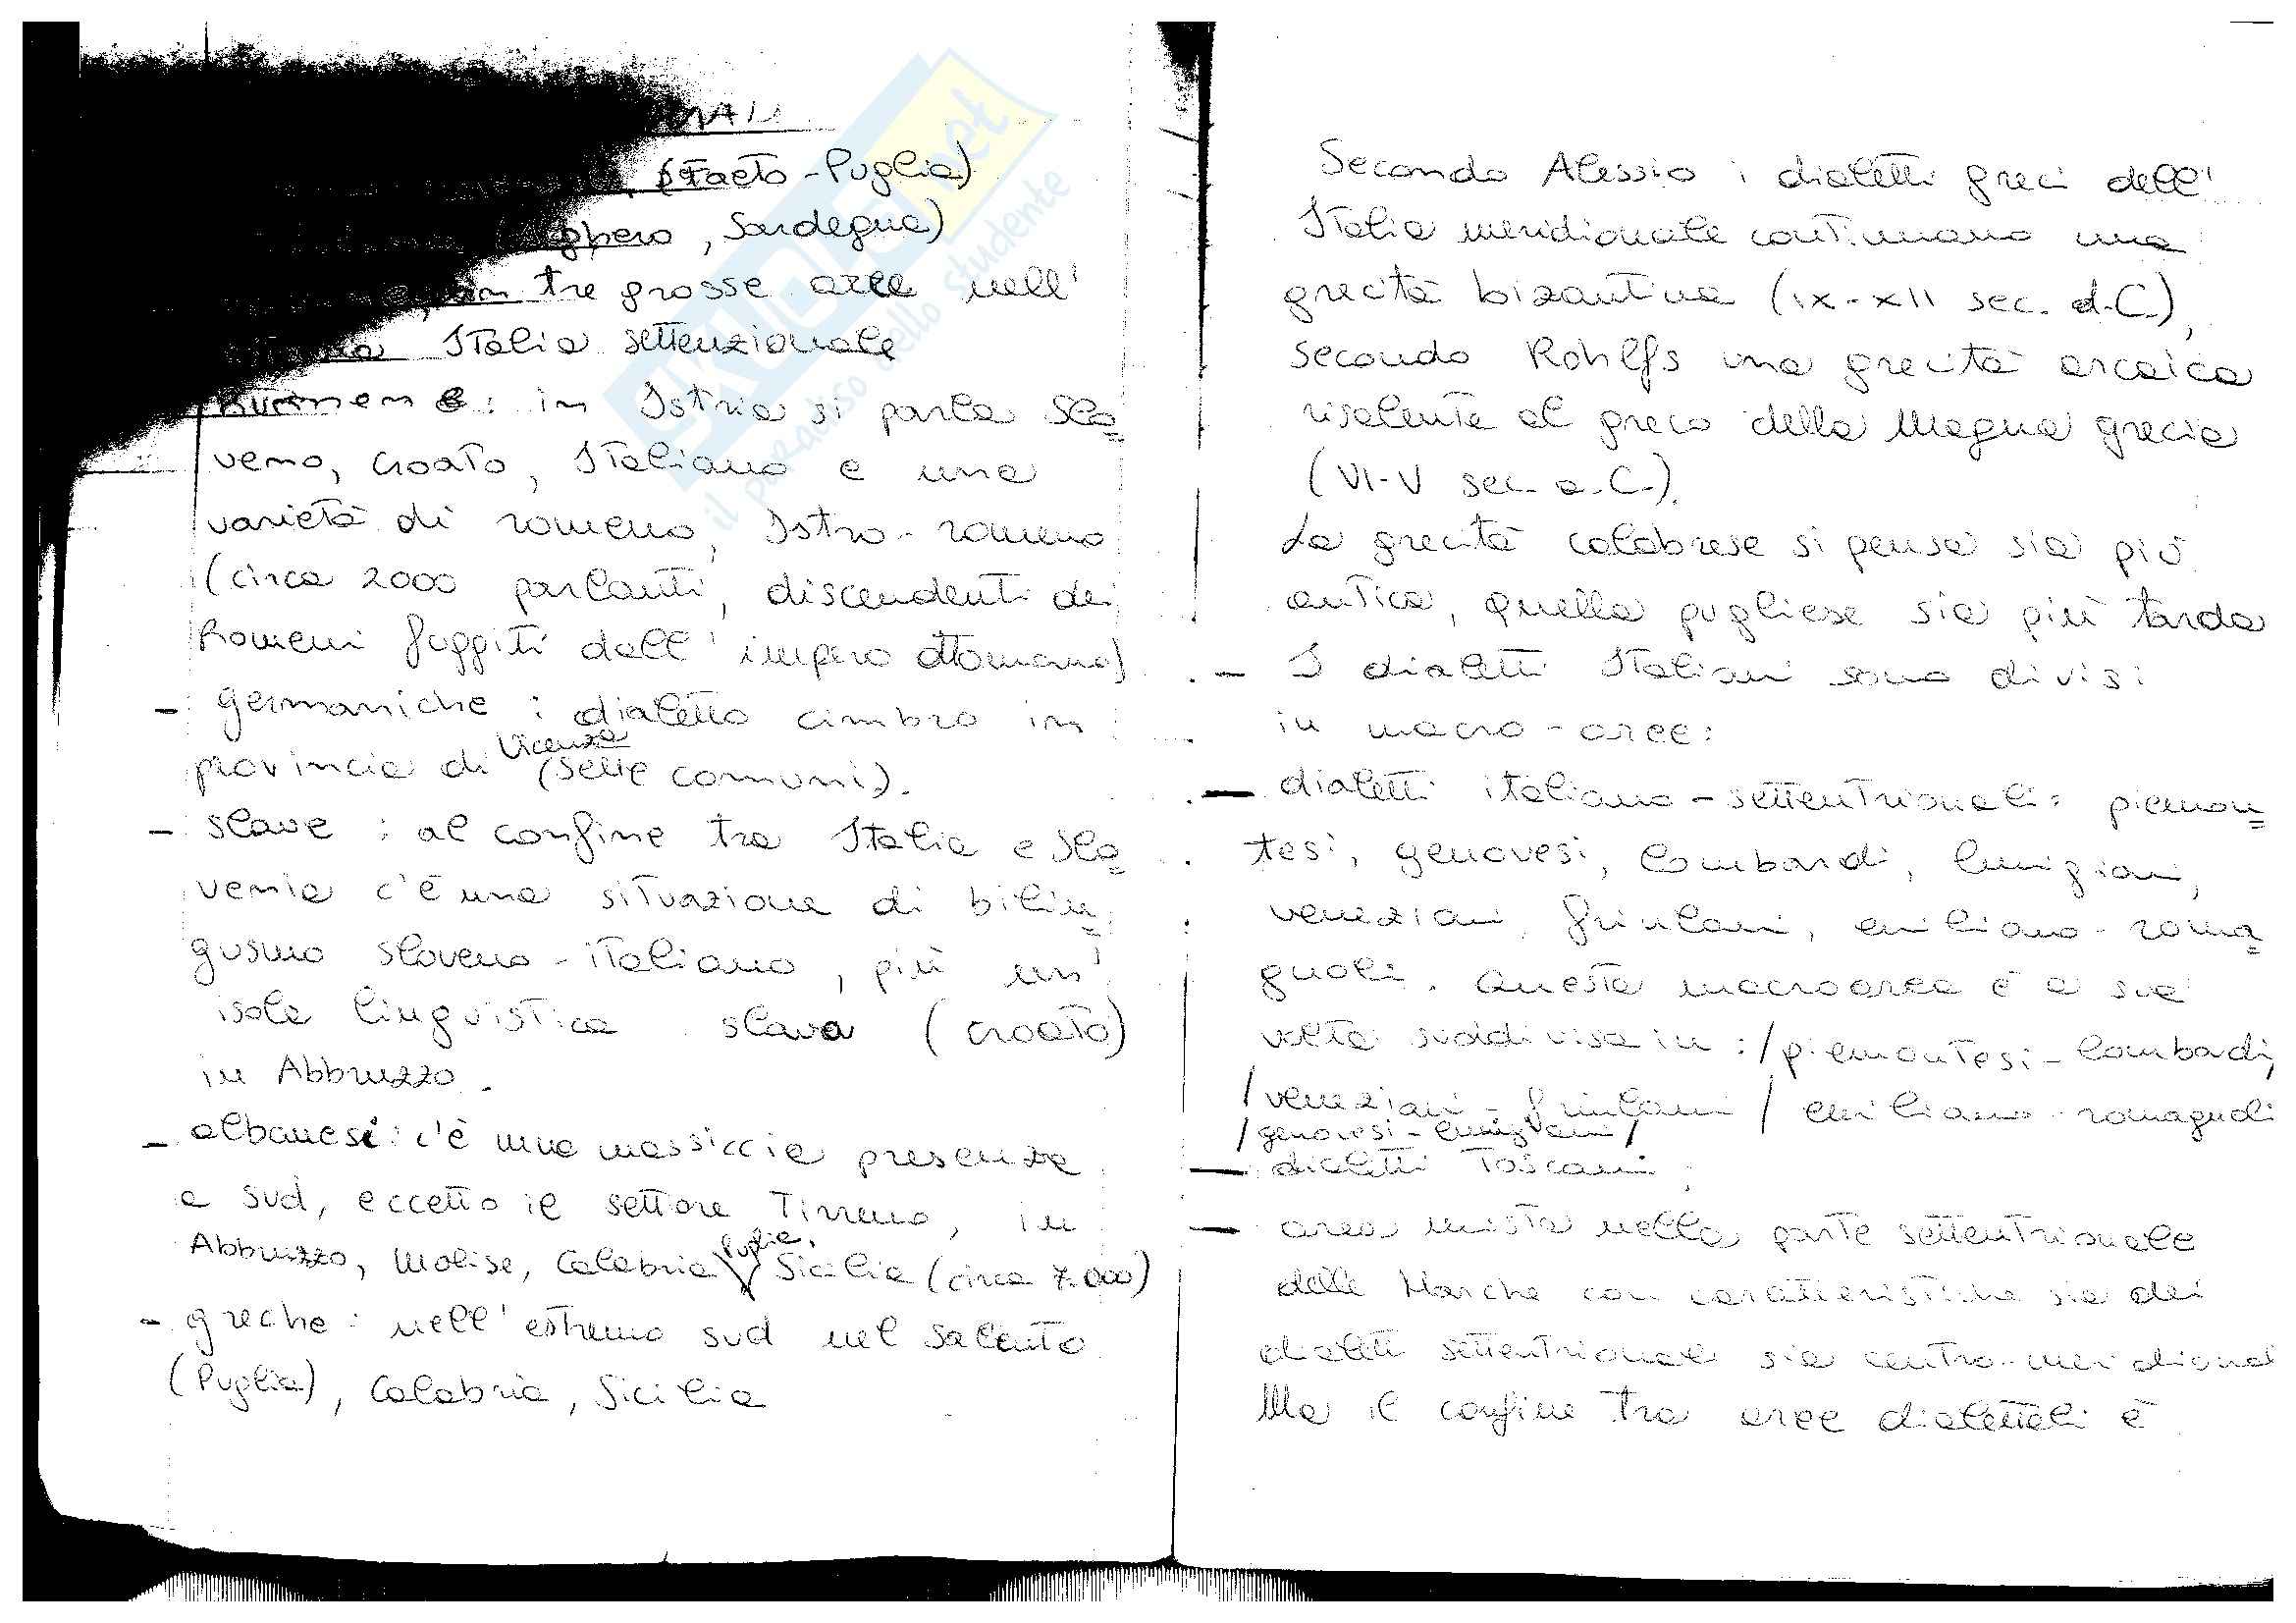 (Faeto - Puglia)
, Sardegna)
tre grosse aree nell'
Italia settenzionale
: in Istria si parla Slo=
veno, croato, Italiano e una
varietà di romeno, Istro-romeno
(circa 2000 parlanti, discendenti dei
Romeni fuggiti dall'impero ottomano)
- germaniche : dialetto cimbro in
Vicenza
provincia di (Sette comuni).
- slave : al confine tra Italia e Slo=
venia c'è una situazione di bilin=
guismo sloveno-italiano, più un'
isola linguistica slava (croato)
in Abbruzzo.
- albanesi: c'è una massiccia presenza
a sud, eccetto il settore Tirreno, in
Puglia,
Abbruzzo, Molise, Calabria Sicilia (circa 7.000)
- greche : nell'estremo sud nel Salento
(Puglia), Calabria, Sicilia
Secondo Alessio i dialetti greci dell'
Italia meridionale continuano una
grecità bizantina (IX-XII sec. d.C),
secondo Rohlfs una grecità arcaica
risalente al greco della Magna grecia
(VI-V sec. a.C.).
La grecità calabrese si pensa sia più
antica, quella pugliese sia più tarda
- I dialetti Italiani sono divisi
in macro-aree:
- dialetti italiano-settentrionali: piemon=
tesi, genovesi, lombardi, lunigiani,
veneziani, friulani, emiliano-roma=
gnoli. Questa macroarea è a sua
volta suddivisa in :/piemontesi-lombardi/
/veneziani-friulani/ emiliano-romagnoli
/genovesi-lunigiani/
- dialetti Toscani;
- area mista nella parte settentrionale
delle Marche con caratteristiche sia dei
dialetti settentrionali sia centro-meridional
Ma il confine tra aree dialettali è
SKUOLA.net
il paradiso dello studente